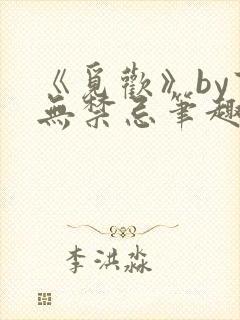 《覓歡》by
無禁忌筆趣
李洪淼